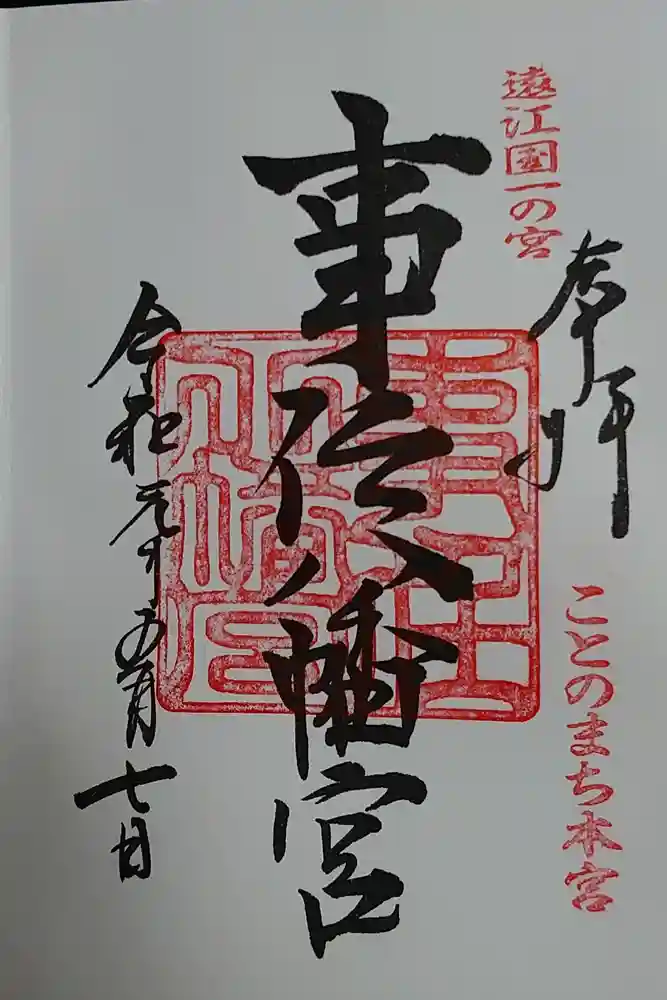 遠江国一の宮
奉拝
ことのまち本宮
事任八幡宮
令和元年五月七日